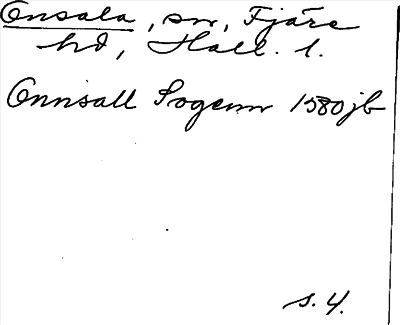 Onsala, sn, Fjäre
hd, Hall. l.
Onnsall Sogenn 1580 jb
s. 4.